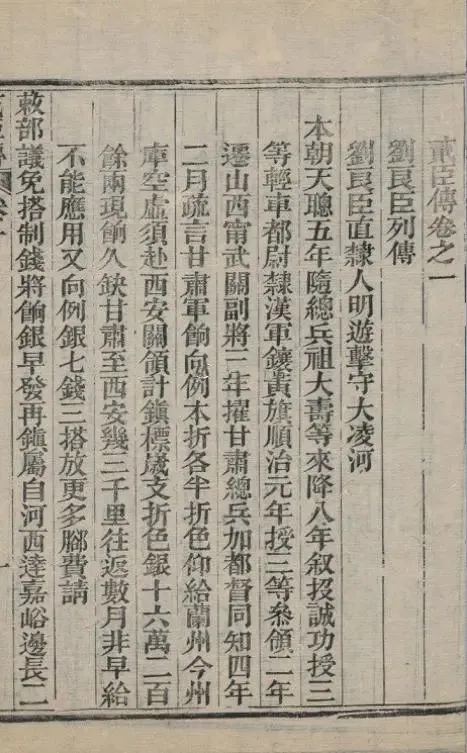 貳臣傳卷之一
劉良臣列傳
劉良臣直隸人明遊擊守大凌河
本朝天聰五年隨總兵祖大壽等來降八年敘投誠功授三
等輕車都尉隸漢軍鑲黃旗順治元年授三等參領二年
遷山西甯武關副將三年擢甘肅總兵加都督同知四年
二月疏言甘肅軍餉向例本折各半折色仰給蘭州今州
庫空虛須赴西安關領計鎮標歲支折色銀十六萬二百
餘兩現餉久缺甘肅至西安幾三千里往返數月非早給
不能應用又向例銀七錢三搭放更多腳費請
敕部議免搭制錢將餉銀早發再鎮屬自河西達嘉峪邊長二